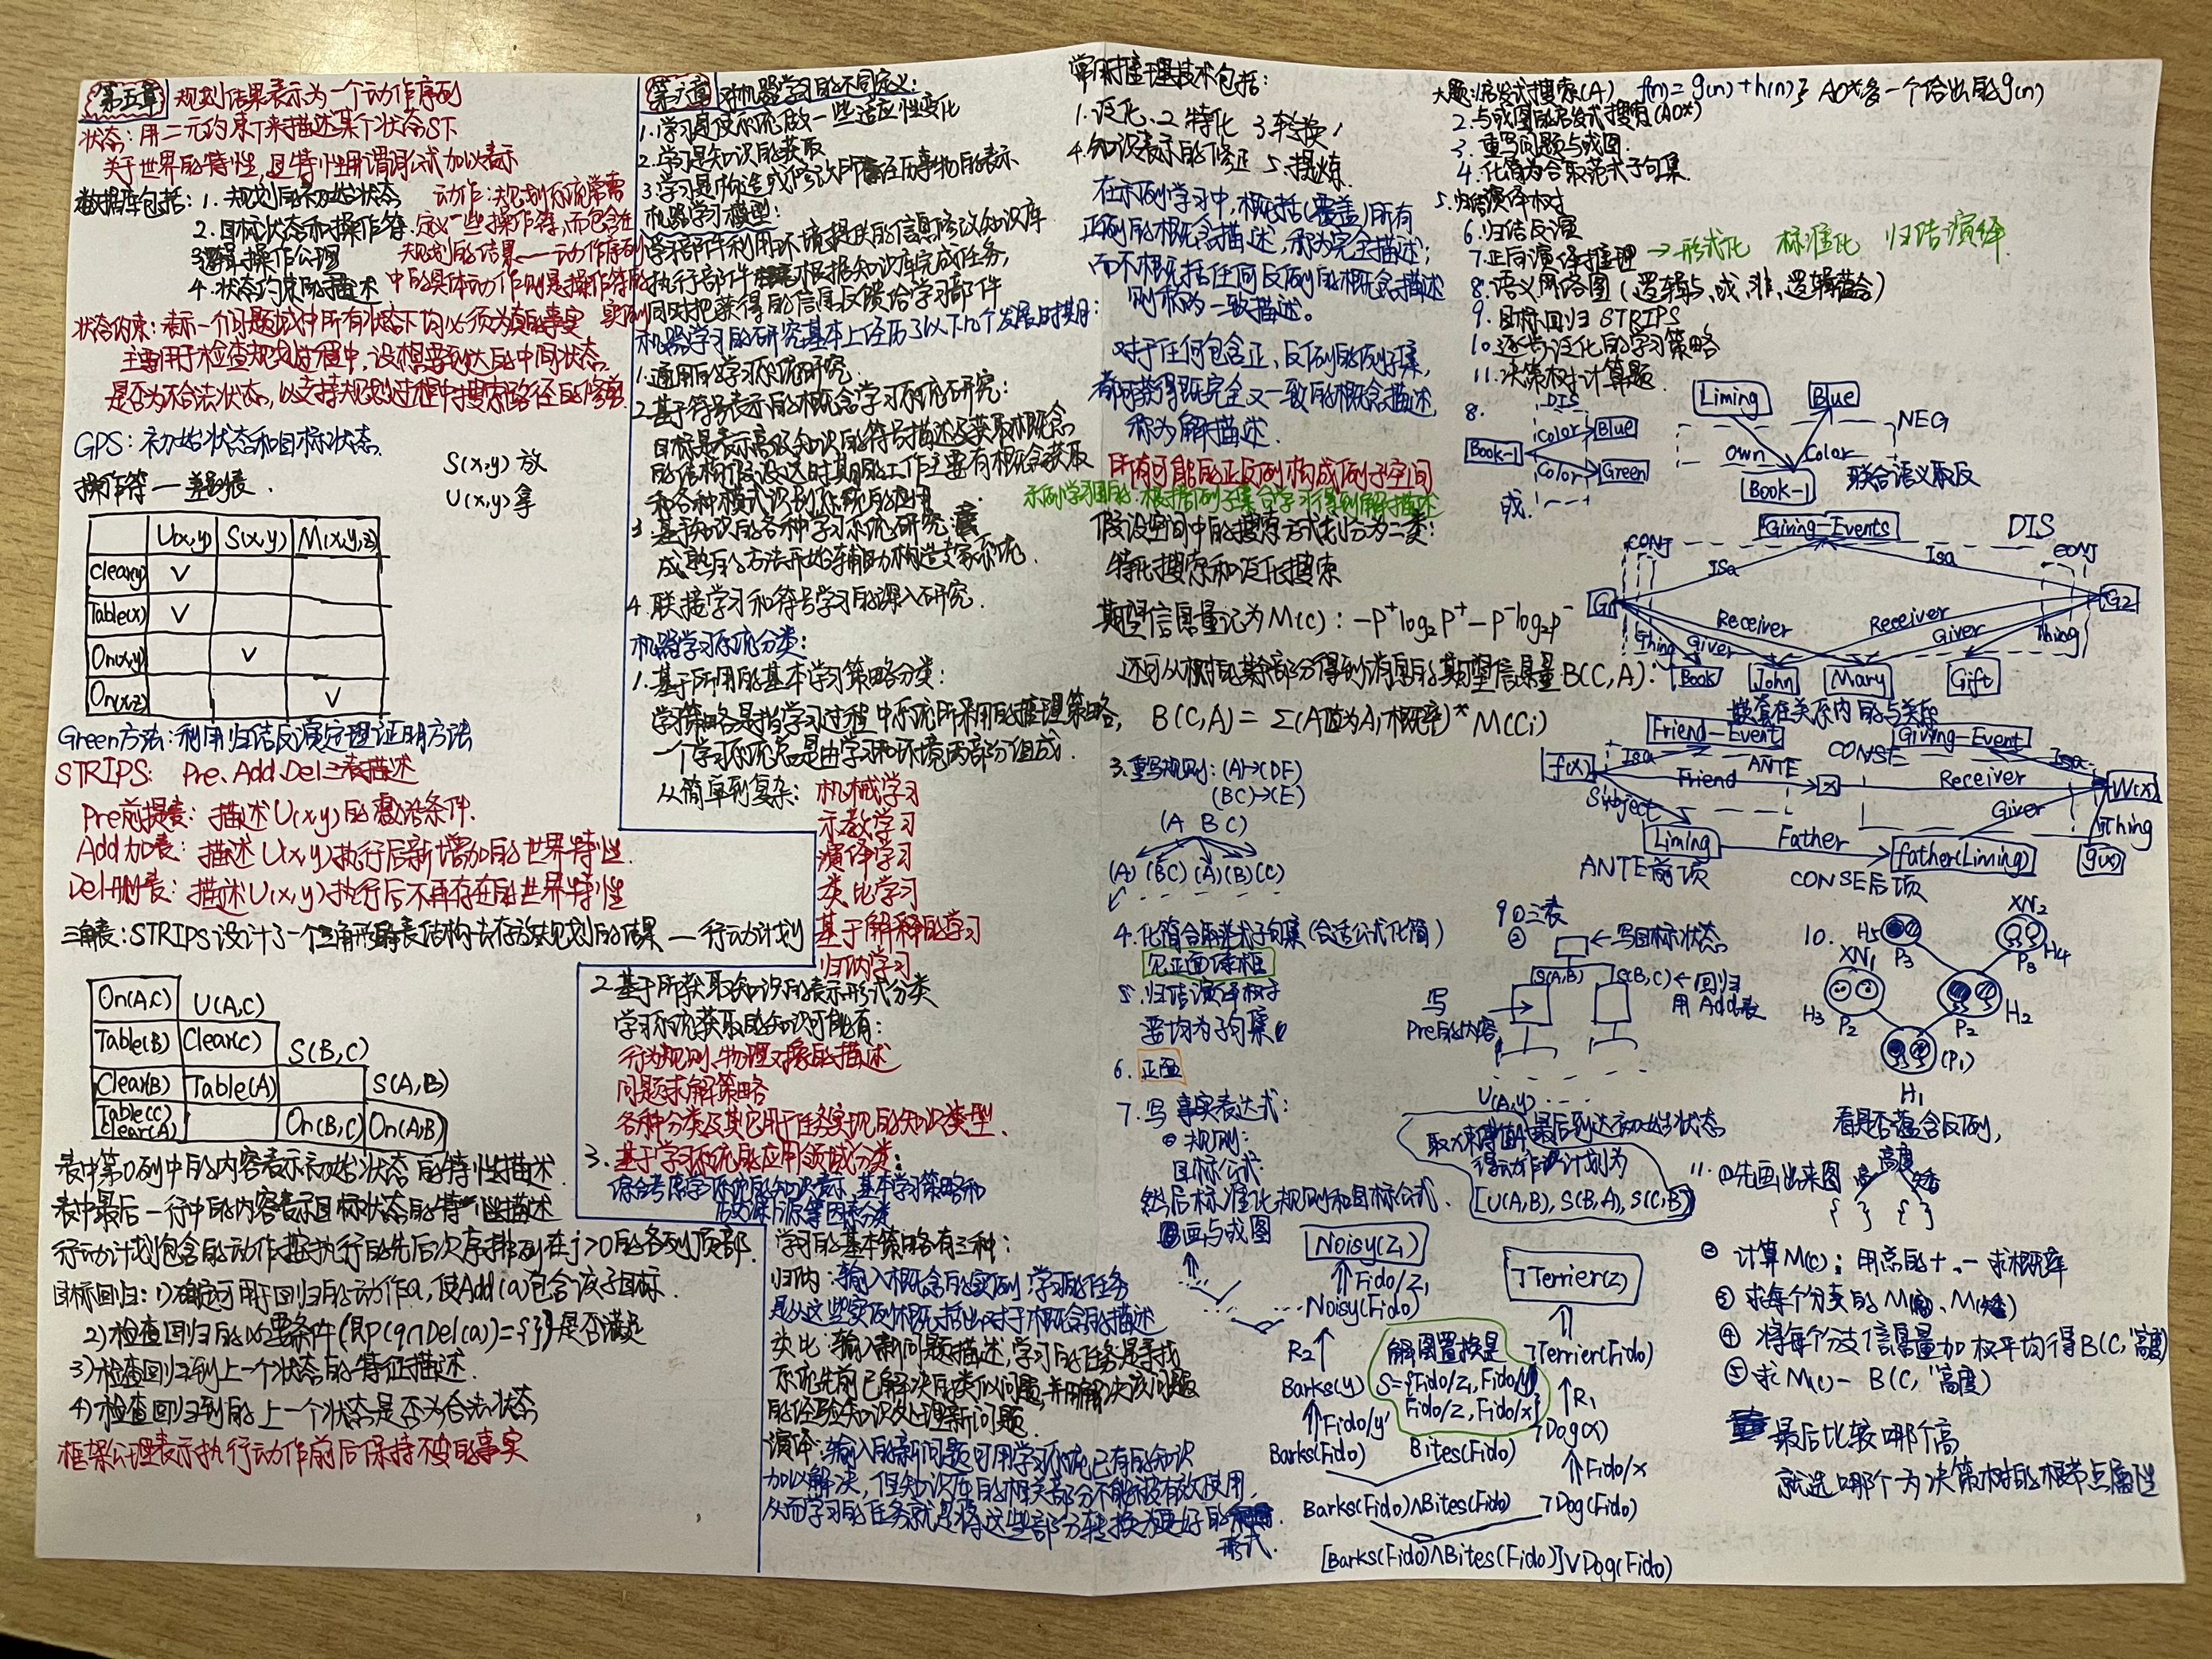 第五章 规划结果表示为一个动作序列
状态:用二元约束T来描述某个状态ST
关于世界的特性,且特性用谓词公式加以表示
数据库包括:1.规划的初始状态
2.目标状态和操作符
3.逻辑操作公理
4.状态约束的描述
动作:规划系统常需
定义一些操作符,而包含在
规划的结果——动作序列
中的具体动作则是操作符的
实例
状态约束:表示一个问题域中所有状态下均必须为真的事实
主要用于检查规划过程中,设想要到达的中间状态
是否为不合法状态,以支持规划过程中搜索路径的修剪
GPS:初始状态和目标状态
操作符—差别表.
S(x,y) 放
U(x,y) 拿
U(x,y) S(x,y) M(x,y,z)
Clear(y) √
Table(x) √
On(x,y) √
On(x,z) √
Green方法:利用归结反演定理证明方法
STRIPS: Pre、Add、Del三表描述
Pre前提表:描述U(x,y)的激活条件.
Add加表:描述U(x,y)执行后新增加的世界特性.
Del删表:描述U(x,y)执行后不再存在的世界特性
三角表:STRIPS设计了一个三角形表结构去存放规划的结果—行动计划
On(A,C) U(A,C)
Table(B) Clear(C) S(B,C)
Clear(B) Table(A) S(A,B)
Table(C) Clear(A) On(B,C) On(A,B)
表中第0列中的内容表示初始状态的特性描述
表中最后一行中的内容表示目标状态的特性描述
行动计划包含的动作按执行的先后次序排列在j>0的各列顶部.
目标回归:1)确定可用于回归的动作a,使Add(a)包含该子目标.
2)检查回归的必要条件(即P(q∩Del(a))={})是否满足
3)检查回归到上一个状态的特征描述.
4)检查回归到的上一个状态是否为合法状态
框架公理表示执行动作前后保持不变的事实
第六章 对机器学习的不同定义:
1.学习是使系统做一些适应性变化
2.学习是知识的获取
3.学习是构造或修改所经历事物的表示
机器学习模型:
学习部件利用环境提供的信息修改知识库
执行部件根据知识库完成任务,
同时把获得的信息反馈给学习部件
机器学习的研究基本上经历了以下几个发展时期:
1.通用的学习系统研究.
2.基于符号表示的概念学习系统研究:
目标是表示高级知识的符号描述及获取概念
的结构假设,这时期的工作主要有概念获取
和各种模式识别系统的应用.
3.基于知识的各种学习系统研究:
成熟的方法开始辅助构造专家系统.
4.联接学习和符号学习的深入研究.
机器学习系统分类:
1.基于所用的基本学习策略分类:
学习策略是指学习过程中系统所采用的推理策略,
一个学习系统总是由学习和环境两部分组成.
从简单到复杂: 机械学习
示教学习
演绎学习
类比学习
基于解释的学习
归纳学习
2.基于所获取知识的表示形式分类
学习系统获取的知识可能有:
行为规则、物理对象的描述
问题求解策略
各种分类及其它用于任务实现的知识类型.
3.基于学习系统的应用领域分类:
综合考虑学习系统的知识表示、基本学习策略和
历史渊源等因素分类
学习的基本策略有三种:
归纳:输入概念的实例,学习的任务
是从这些实例概括出对于概念的描述
类比:输入新问题描述,学习的任务是寻找
系统先前已解决的类似问题,并用解决该问题
的经验知识处理新问题
演绎:输入的新问题可用学习系统已有的知识
加以解决,但知识库的相关部分不能被有效使用,
从而学习的任务就是将这些部分转换为更好的
形式.
常用推理技术包括:
1.泛化、2.特化 3.转换、
4.知识表示的修正 5.提炼.
在示例学习中,概括(覆盖)所有
正例的概念描述,称为完全描述;
而不概括任何反例的概念描述
则称为一致描述。
对于任何包含正、反例的例子集,
都可获得既完全又一致的概念描述,
称为解描述.
所有可能的正反例构成例子空间
示例学习目的:根据例子集合学习得到解描述
假设空间中的搜索方式划分为二类:
特化搜索和泛化搜索
期望信息量记为M(C): -P⁺log₂P⁺-P⁻log₂P⁻
还可从树的其余部分得到消息的期望信息量B(C,A):
B(C,A)= Σ(A值为Ai概率)*M(Ci)
3.重写规则:(A)→(DE)
(BC)→(E)
(A B C)
(A) (BC) (A)(B)(C)
4.化简合取范式子句集(合适公式化简)
见正面绿框
5.归结演绎树
要均为子句集
6.正面
7.写事实表达式:
规则:
目标公式:
然后标准化规则和目标公式.
画与或图
Noisy(z₁)
Fido/z₁
Noisy(Fido)
R2
Barks(y)
Fido/y
Barks(Fido) Bites(Fido)
Barks(Fido)∧Bites(Fido) ¬Dog(Fido)
[Barks(Fido)∧Bites(Fido)]∨Dog(Fido)
解图置换是
S={Fido/z₁,Fido/y
Fido/z,Fido/x}
¬Terrier(z)
¬Terrier(Fido)
R1
¬Dog(x)
Fido/x
大题:1.启发式搜索(A) f(n)=g(n)+h(n)} AO*多一个给出的g(n)
2.与或图的启发式搜索(AO*)
3.重写问题与或图.
4.化简为合取范式子句集.
5.归结演绎树
6.归结反演
7.正向演绎推理 →形式化 标准化 归结演绎
8.语义网络图(逻辑与、或、非、逻辑蕴含)
9.目标回归STRIPS
10.逐步泛化的学习策略
11.决策树计算题.
8.
DIS
Book-1 Color Blue
Color Green
或.
Liming Blue
NEG
Own Color
Book-1
联合语义取反
Giving-Events DIS
CONJ CONJ
Isa Isa
G1 G2
Receiver Receiver
Thing Giver Giver Thing
Book John Mary Gift
嵌套在关系内的与关系
Friend-Event Giving-Event
Isa ANTE CONSE Isa
f(x) Friend z Receiver W(x)
Subject Giver Thing
Liming Father father(Liming) g(x)
ANTE前项 CONSE后项
9 ①三表
② ←写目标状态
S(A,B) S(B,C) ←回归
用Add表
写
Pre的内容
U(A,y)
最后到达初始状态
得动作计划为
[U(A,B),S(B,A),S(C,B)]
10. H5 P3 XN2 H4
XN1 P3
H3 P2 P2 H2
(P1)
H1
看是否蕴含反例,
11.①先画出来图 高度
高 矮
{ } { }
② 计算M(C):用总的+、-求概率
③ 求每个分类的M(高)、M(矮)
④ 将每个分支信息量加权平均得B(C,'高度)
⑤ 求M(C)- B(C,'高度)
最后比较哪个高
就选哪个为决策树的根节点属性